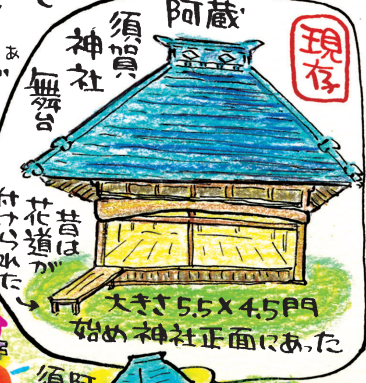 阿蔵
須賀
神社
舞台
現存
昔は
花道が
付けられた
大きさ5.5×4.5門
始め神社正面にあった
須